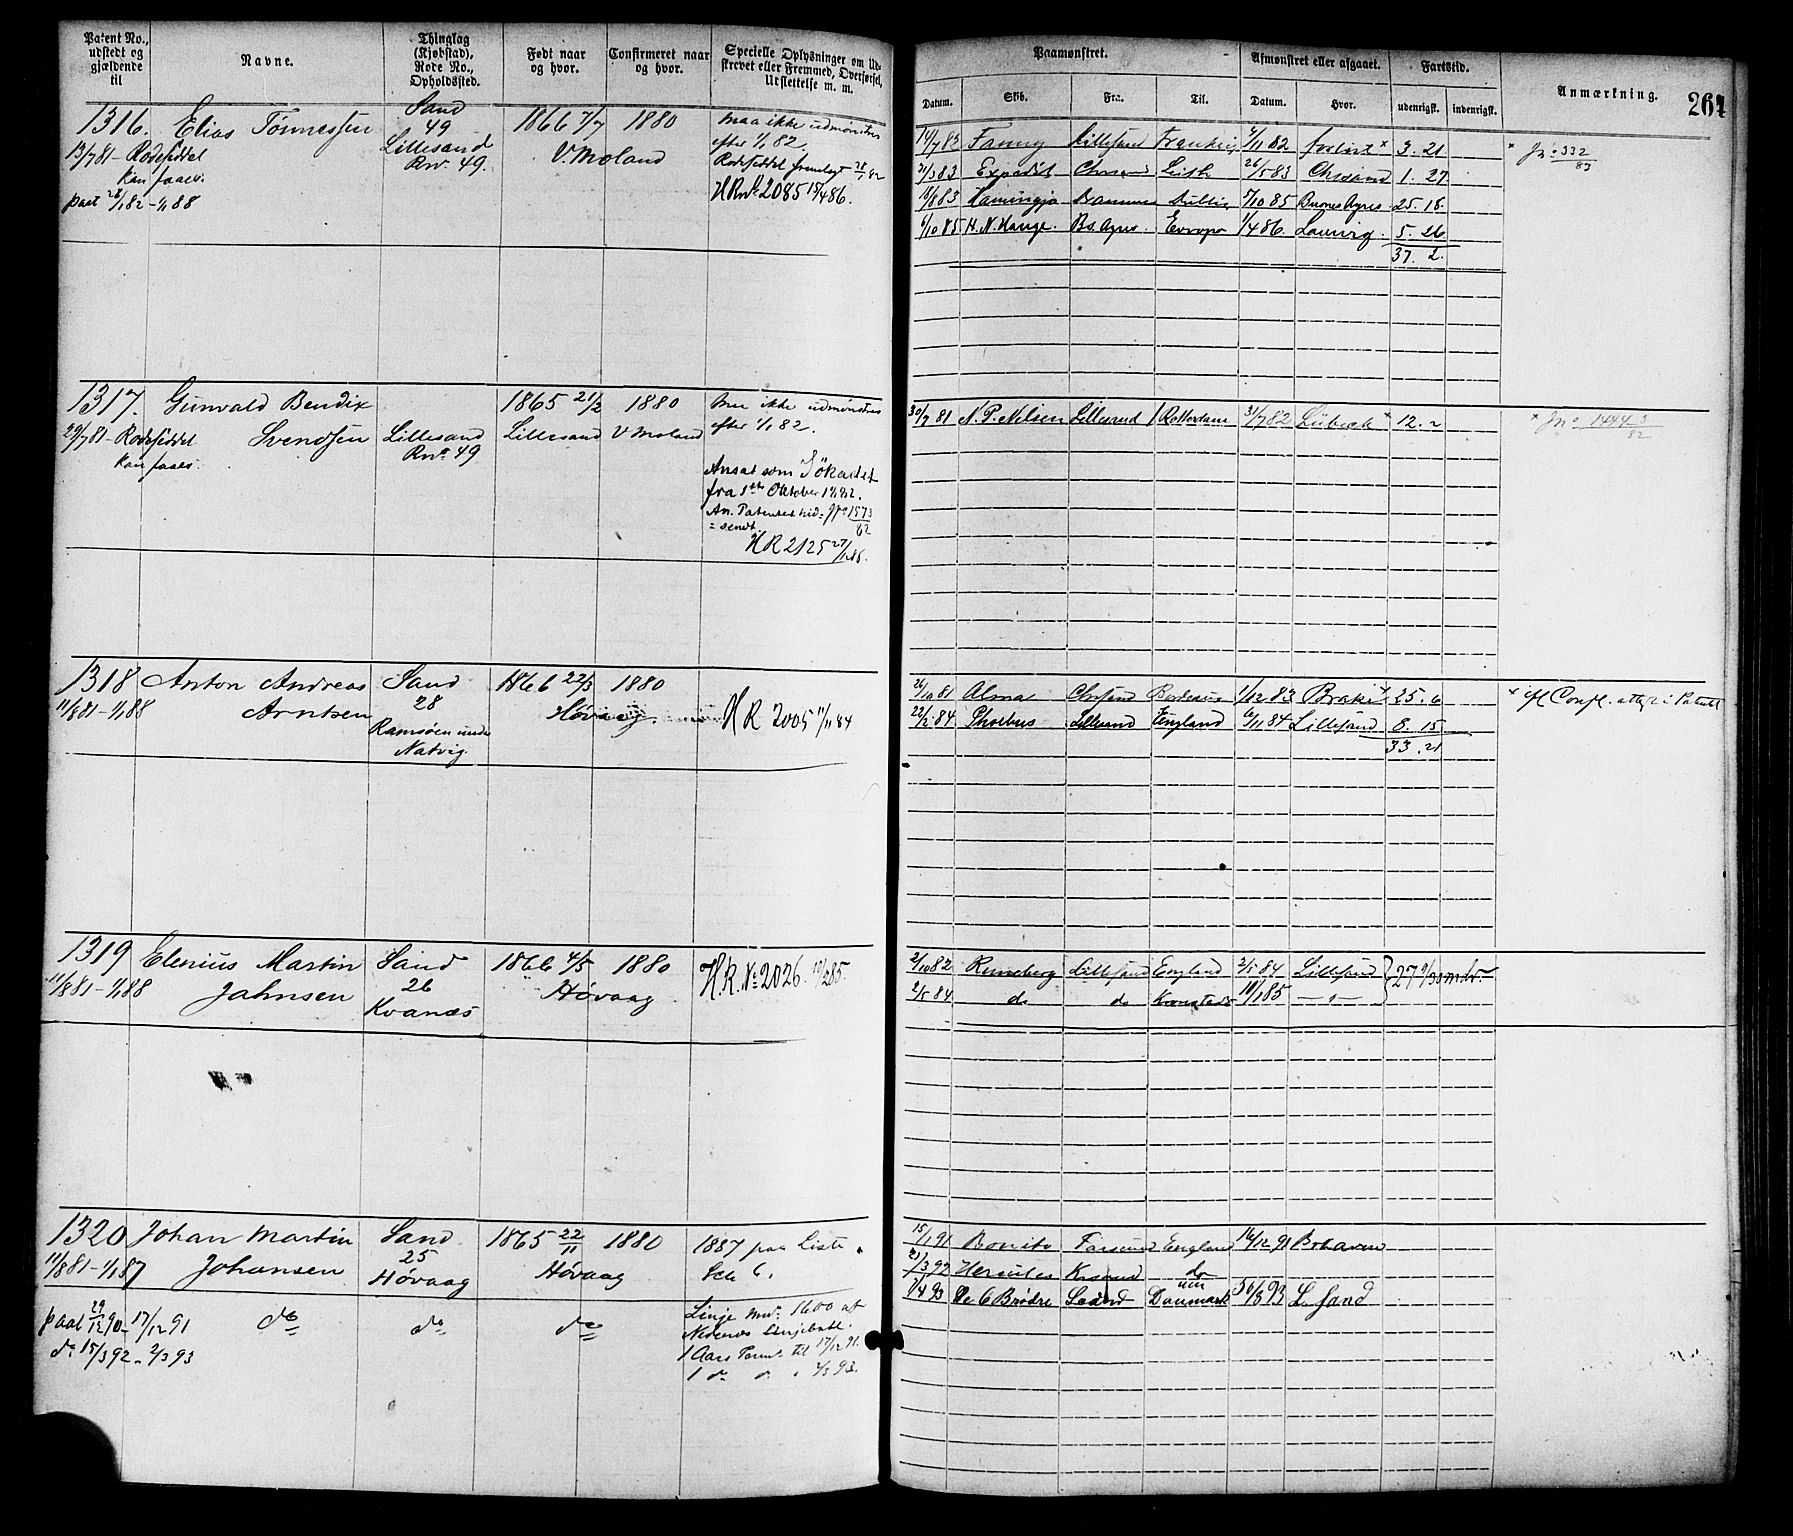 Patent No., udstedt og gjældende til
Navne.
Thinglag (Kjøbstad), Rode No., Opholdssted.
Født naar og hvor.
Confirmeret naar og hvor.
Specielle Oplysninger om Udskrevet eller Fremmed, Overførsel, Udslettelse m. m.
Paamønstret.
Afmønstret eller afgaaet.
Fartstid.
Anmærkning.
264
Datum.
Skib.
Fra.
Til.
Datum.
Hvor.
udenrigsk.
indenrigsk.
1316. Elias Tønnessen Sand 49 Lillesand Rn. 49. 1866 7/7 1880 V. Moland
13/7 81 - Rodeseddel kan faaes.
paat 28/1 82 - 1/1 88
maa ikke udmønstres
efter 1/1 82.
Rodeseddel fremlagt 28/1 82
HRNo 2085 15/4 86.
14/7 82 Fanny Lillesand 2/11 82 forlist x 3. 21
21/3 83 Expedit Chrsand Leith 26/5 83 Chrsand 1. 27
11/8 83 25. 18.
6/10 85 H. N. Hauge. Bs. Ayres. Europa 1/4 86. 5. 26
37. 2.
x Jno 332/83
1317. Gunvald Bendix Svendsen Lillesand Rno 49 1865 21/2 Lillesand 1880 V Moland
29/7 81 - Rodeseddel
kan faaes.
maa ikke udmønstres
efter 1/1 82.
Ansat som Søkadet
fra 1ste Oktober 1882.
An. Patentet hid= Jno 1573/82
= sendt.
HR 2125 27/1 86.
30/7 81 N. P. Nilsen Lillesand Rotterdam 31/7 82 Lübeck x 12. 2
x Jno
1318 Anton Andreas Arntsen Sand 28 Ramsøen under Natvig. 1866 22/3 1880 Høvaag.
11/8 81 - 1/1 88
HR 2005 11/11 84
26/10 81 Alma Chrsand Bordeaux 1/12 83 Brake x 25. 6
22/2 84 Phoebus Lillesand England 6/11 84 Lillesand 8. 15
33. 21
1319 Elenius Martin Jahnsen Sand 26 Kvanæs 1866 4/5 1880 Høvaag
11/8 81 - 1/1 88
H.R. No 2026. 10/2 85.
2/10 82 Runeberg Lillesand England 2/5 84 Lillesand
2/5 84 do do Kronstadt 10/1 85 - " -
27 9/30 mdr.
1320 Johan Martin Johansen Sand 25 Høvaag 1865 22/11 1880 Høvaag
11/8 81 - 1/1 87
1887 paa Liste
Litr 6.
paat 29/12 90 - 17/12 91 do do do
do 15/3 92 - 2/3 93
Linje No. 1600 af
Nedenæs Linjebatl.
1 Aars Patent til 17/12 91.
1 do do " 2/3 93.
15/1 91 Bonito Farsund England 16/12 91
21/3 92 Hercules Krsand do
1/4 93 De 6 Brødre Danmark L. Sand